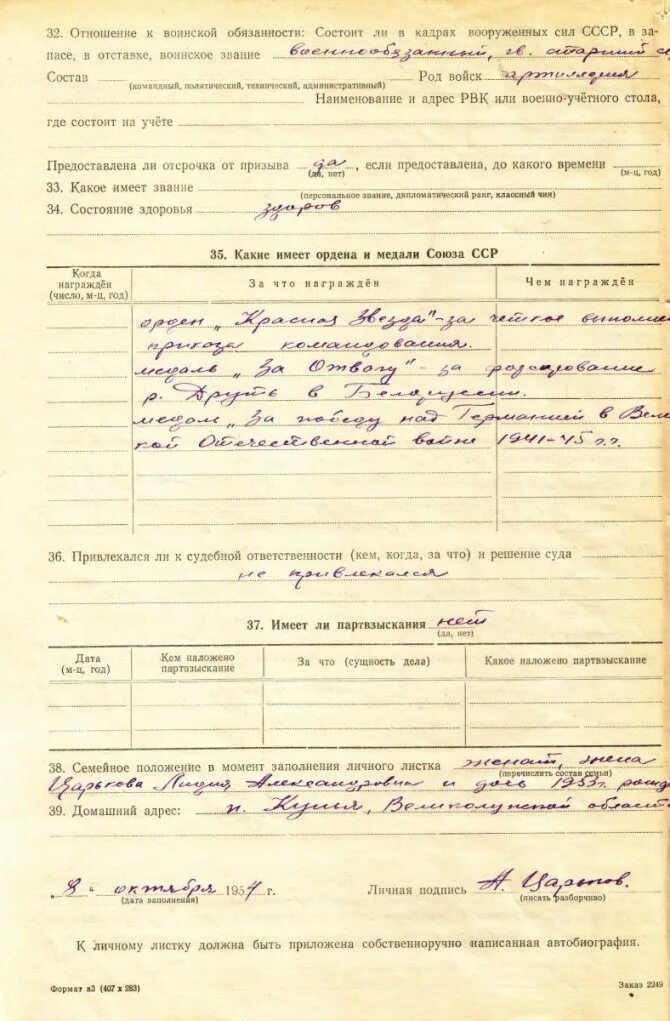 32. Отношение к воинской обязанности: Состоит ли в кадрах вооруженных сил СССР, в за-
пасе, в отставке, воинское звание военнообязанный, гв. старший се
Состав Род войск артиллерия
(командный, политический, технический, административный)
Наименование и адрес РВК или военно-учётного стола,
где состоит на учёте
Предоставлена ли отсрочка от призыва да, если предоставлена, до какого времени
(да, нет) (м-ц, год)
33. Какое имеет звание
(персональное звание, дипломатический ранг, классный чин)
34. Состояние здоровья здоров
35. Какие имеет ордена и медали Союза ССР
Когда награждён (число, м-ц, год) За что награждён Чем награждён
орден „Красная Звезда"-за четкое выполне
приказа командования.
медаль „За Отвагу"- за форсирование
р. Друть в Белоруссии.
медаль „За победу над Германией в Вели
кой Отечественной войне 1941-45 г.г.
36. Привлекался ли к судебной ответственности (кем, когда, за что) и решение суда
не привлекался
37. Имеет ли партвзыскания нет
(да, нет)
Дата (м-ц, год) Кем наложено партвзыскание За что (сущность дела) Какое наложено партвзыскание
38. Семейное положение в момент заполнения личного листка женат, жена
(перечислить состав семьи)
Царькова Лидия Александровна и дочь 1953г. рожд
39. Домашний адрес: п. Кунья, Великолукской област
„8" октября 1954 г. Личная подпись А. Царьков.
(дата заполнения) (писать разборчиво)
К личному листку должна быть приложена собственноручно написанная автобиография.
Формат а3 (407 х 283) Заказ 2249